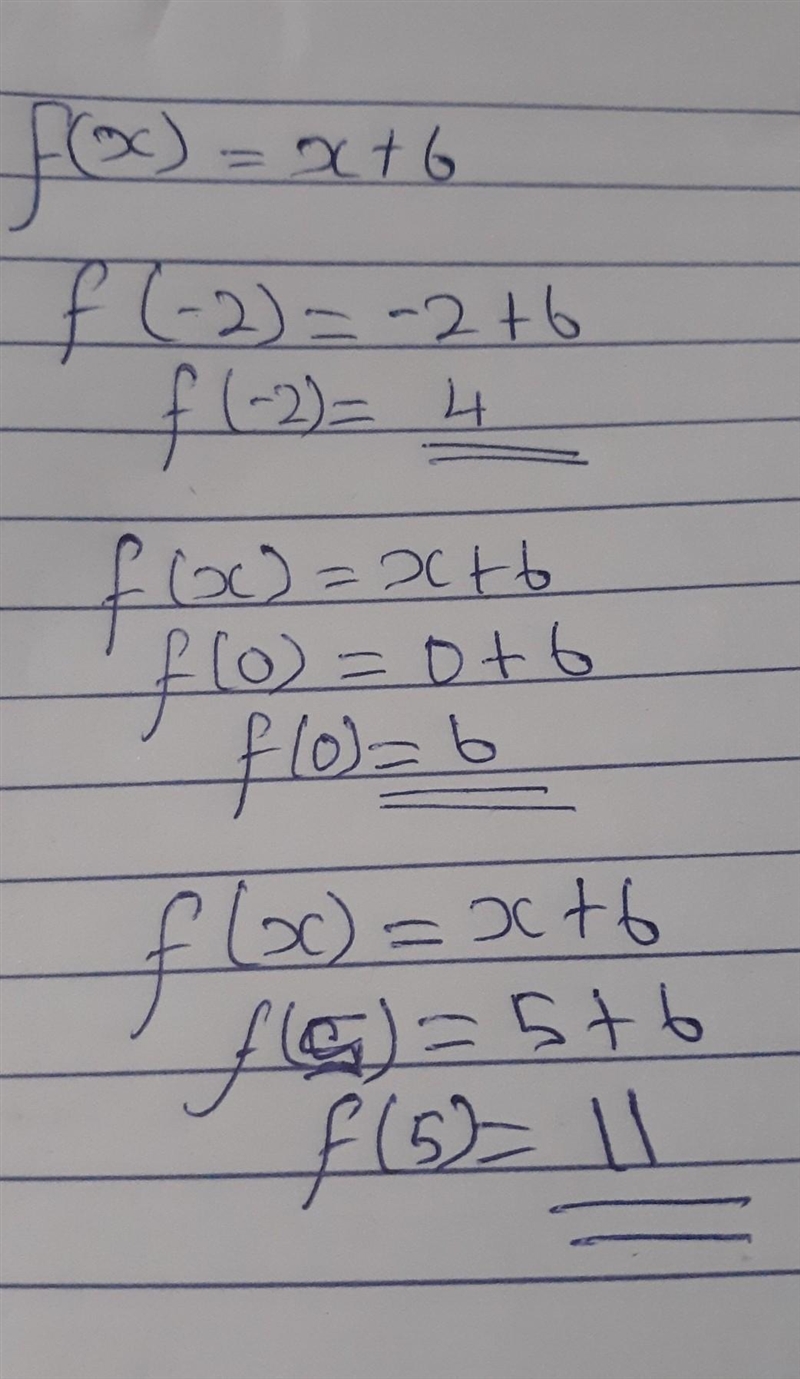 f(x) = x + 6
f(-2) = -2 + 6
f(-2) = 4
f(x) = x + 6
f(0) = 0 + 6
f(0) = 6
f(x) = x + 6
f(5) = 5 + 6
f(5) = 11